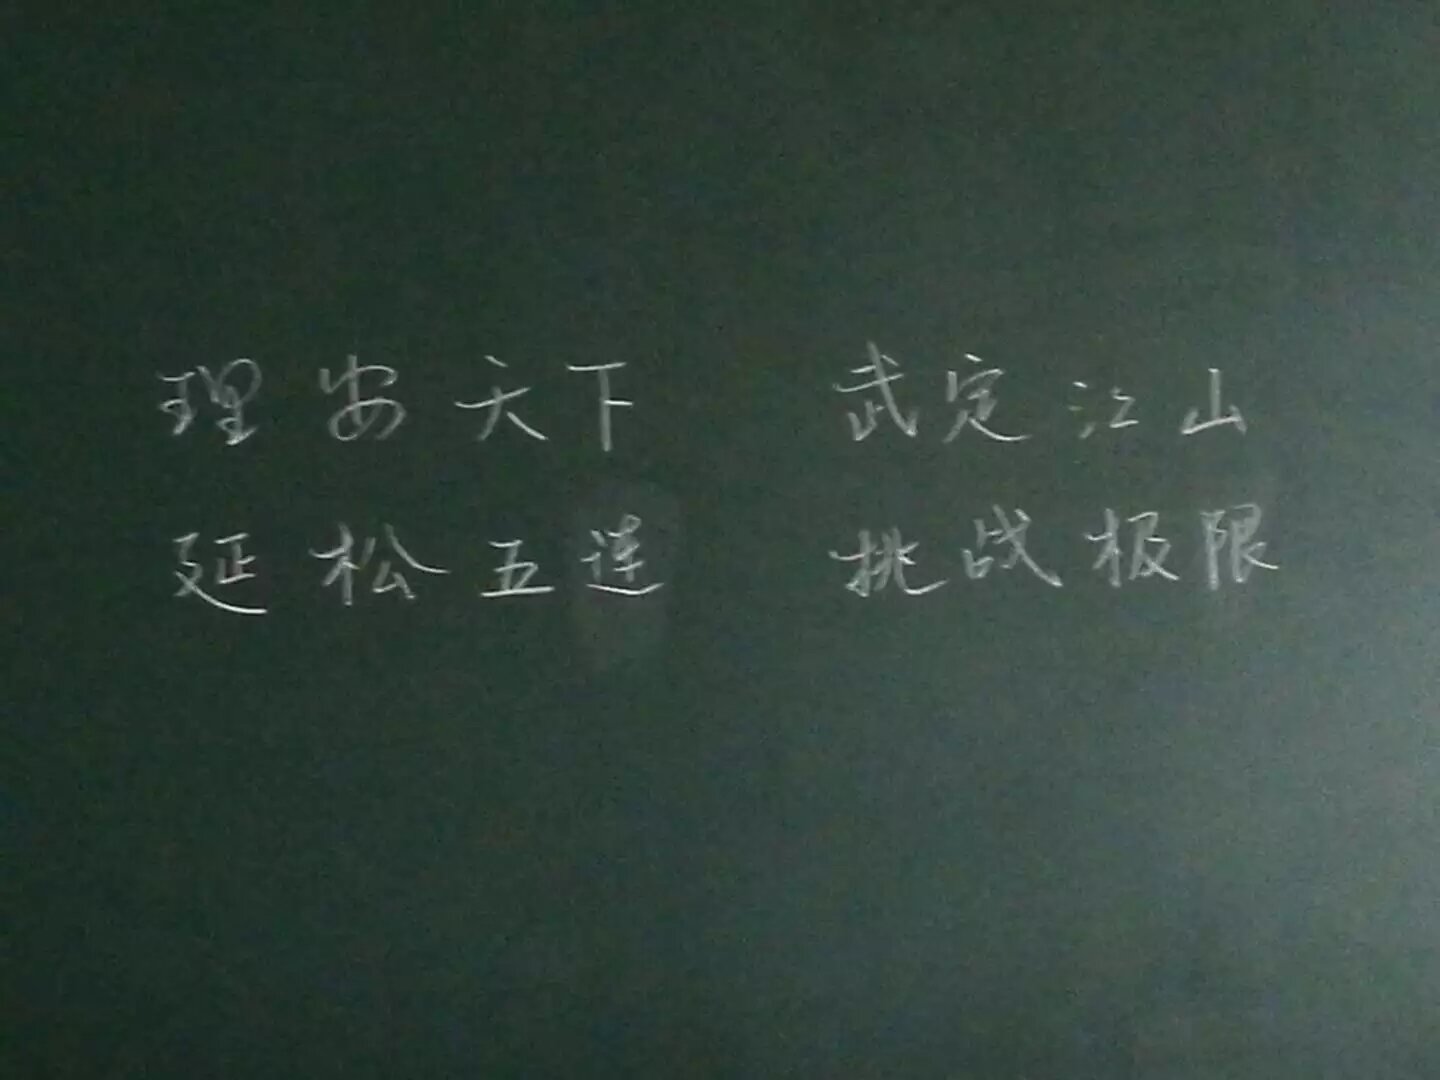 理安天下 武定江山
延松五连 挑战极限